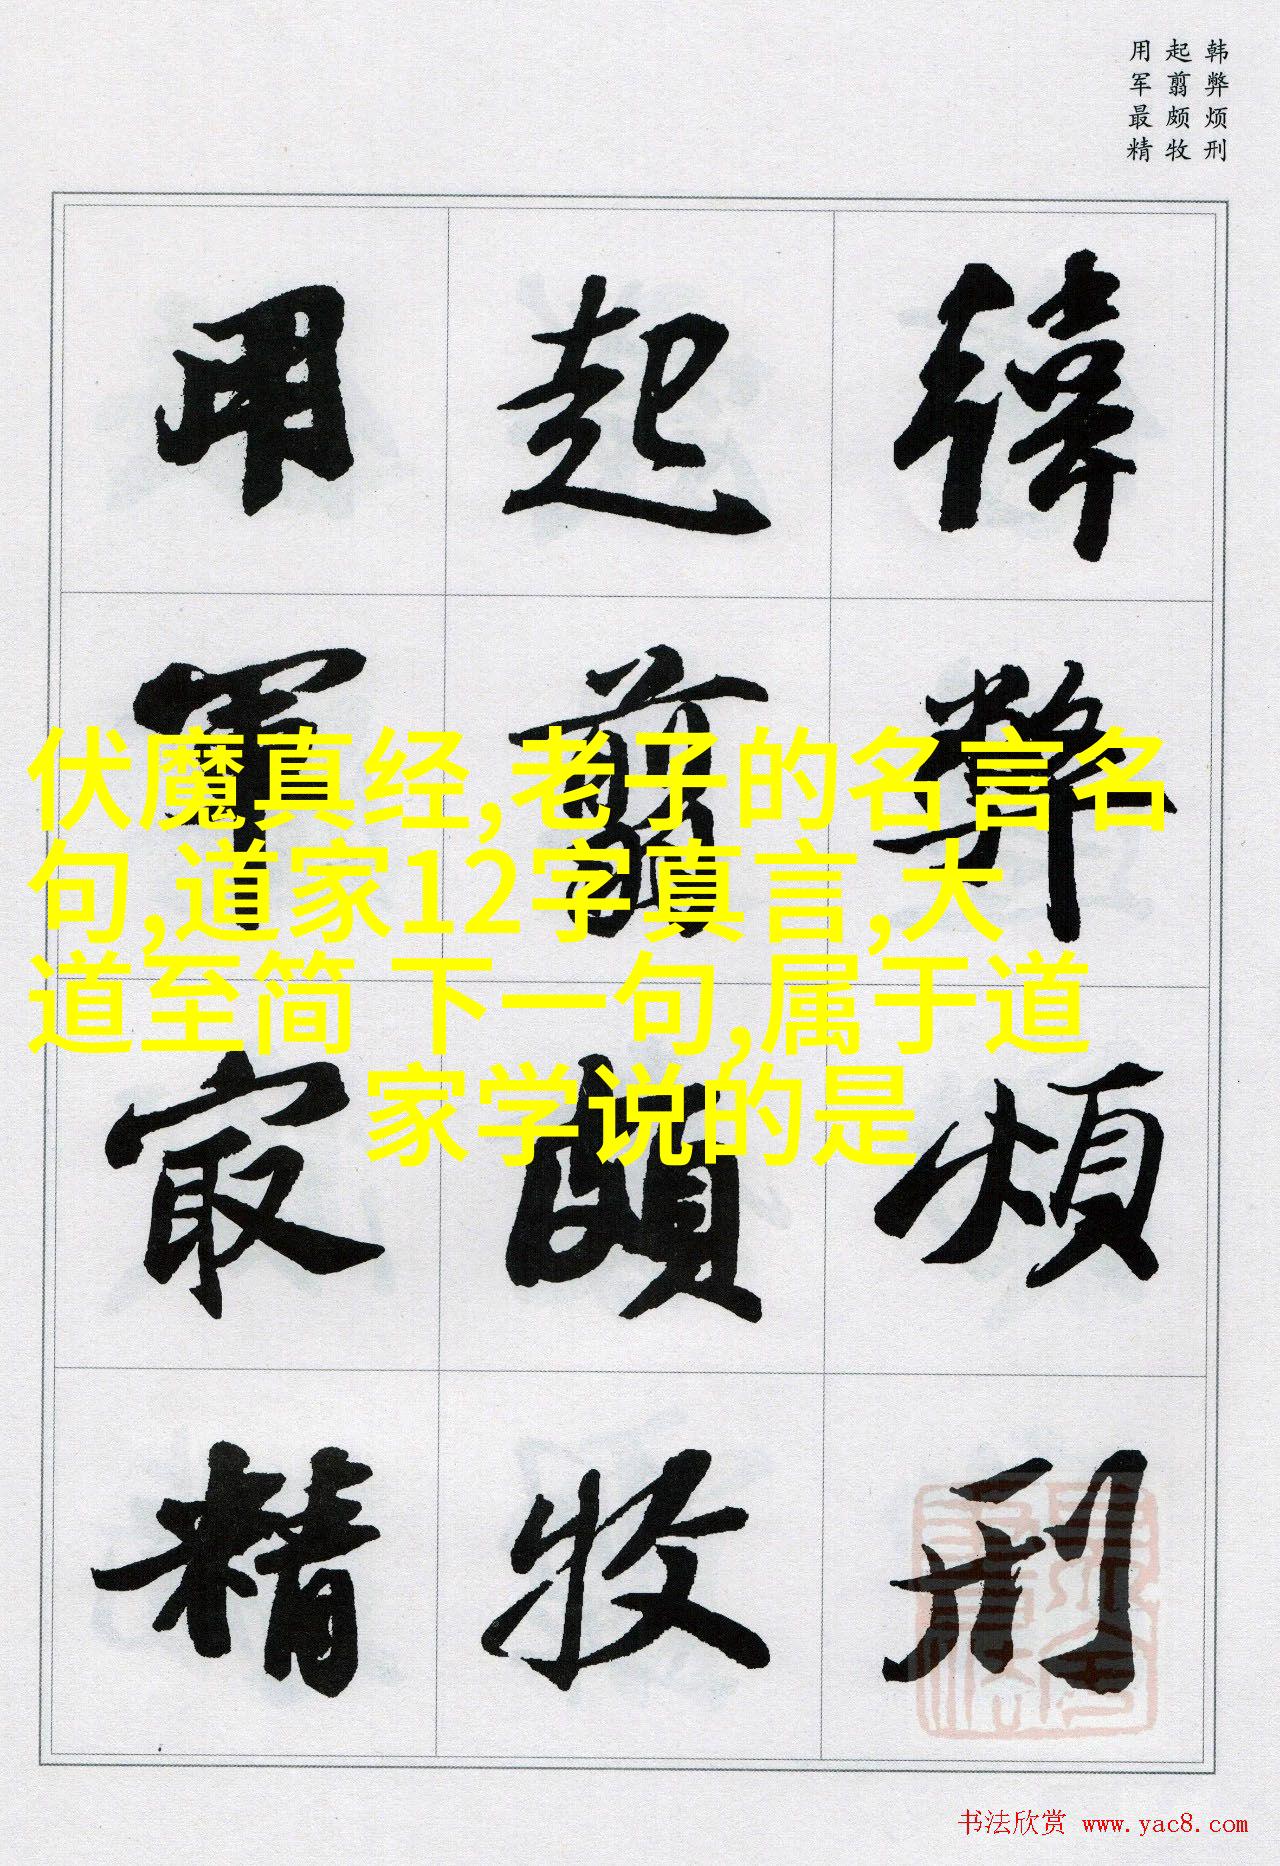 韩弊烦刑
起翦颇牧
用军最精
韩弊烦刑
起翦颇牧
用军最精
伏魔真经,老子的名言名
句,道家12字真言,大
道至简 下一句,属于道
家学说的是
书法欣赏 www.yac8.com